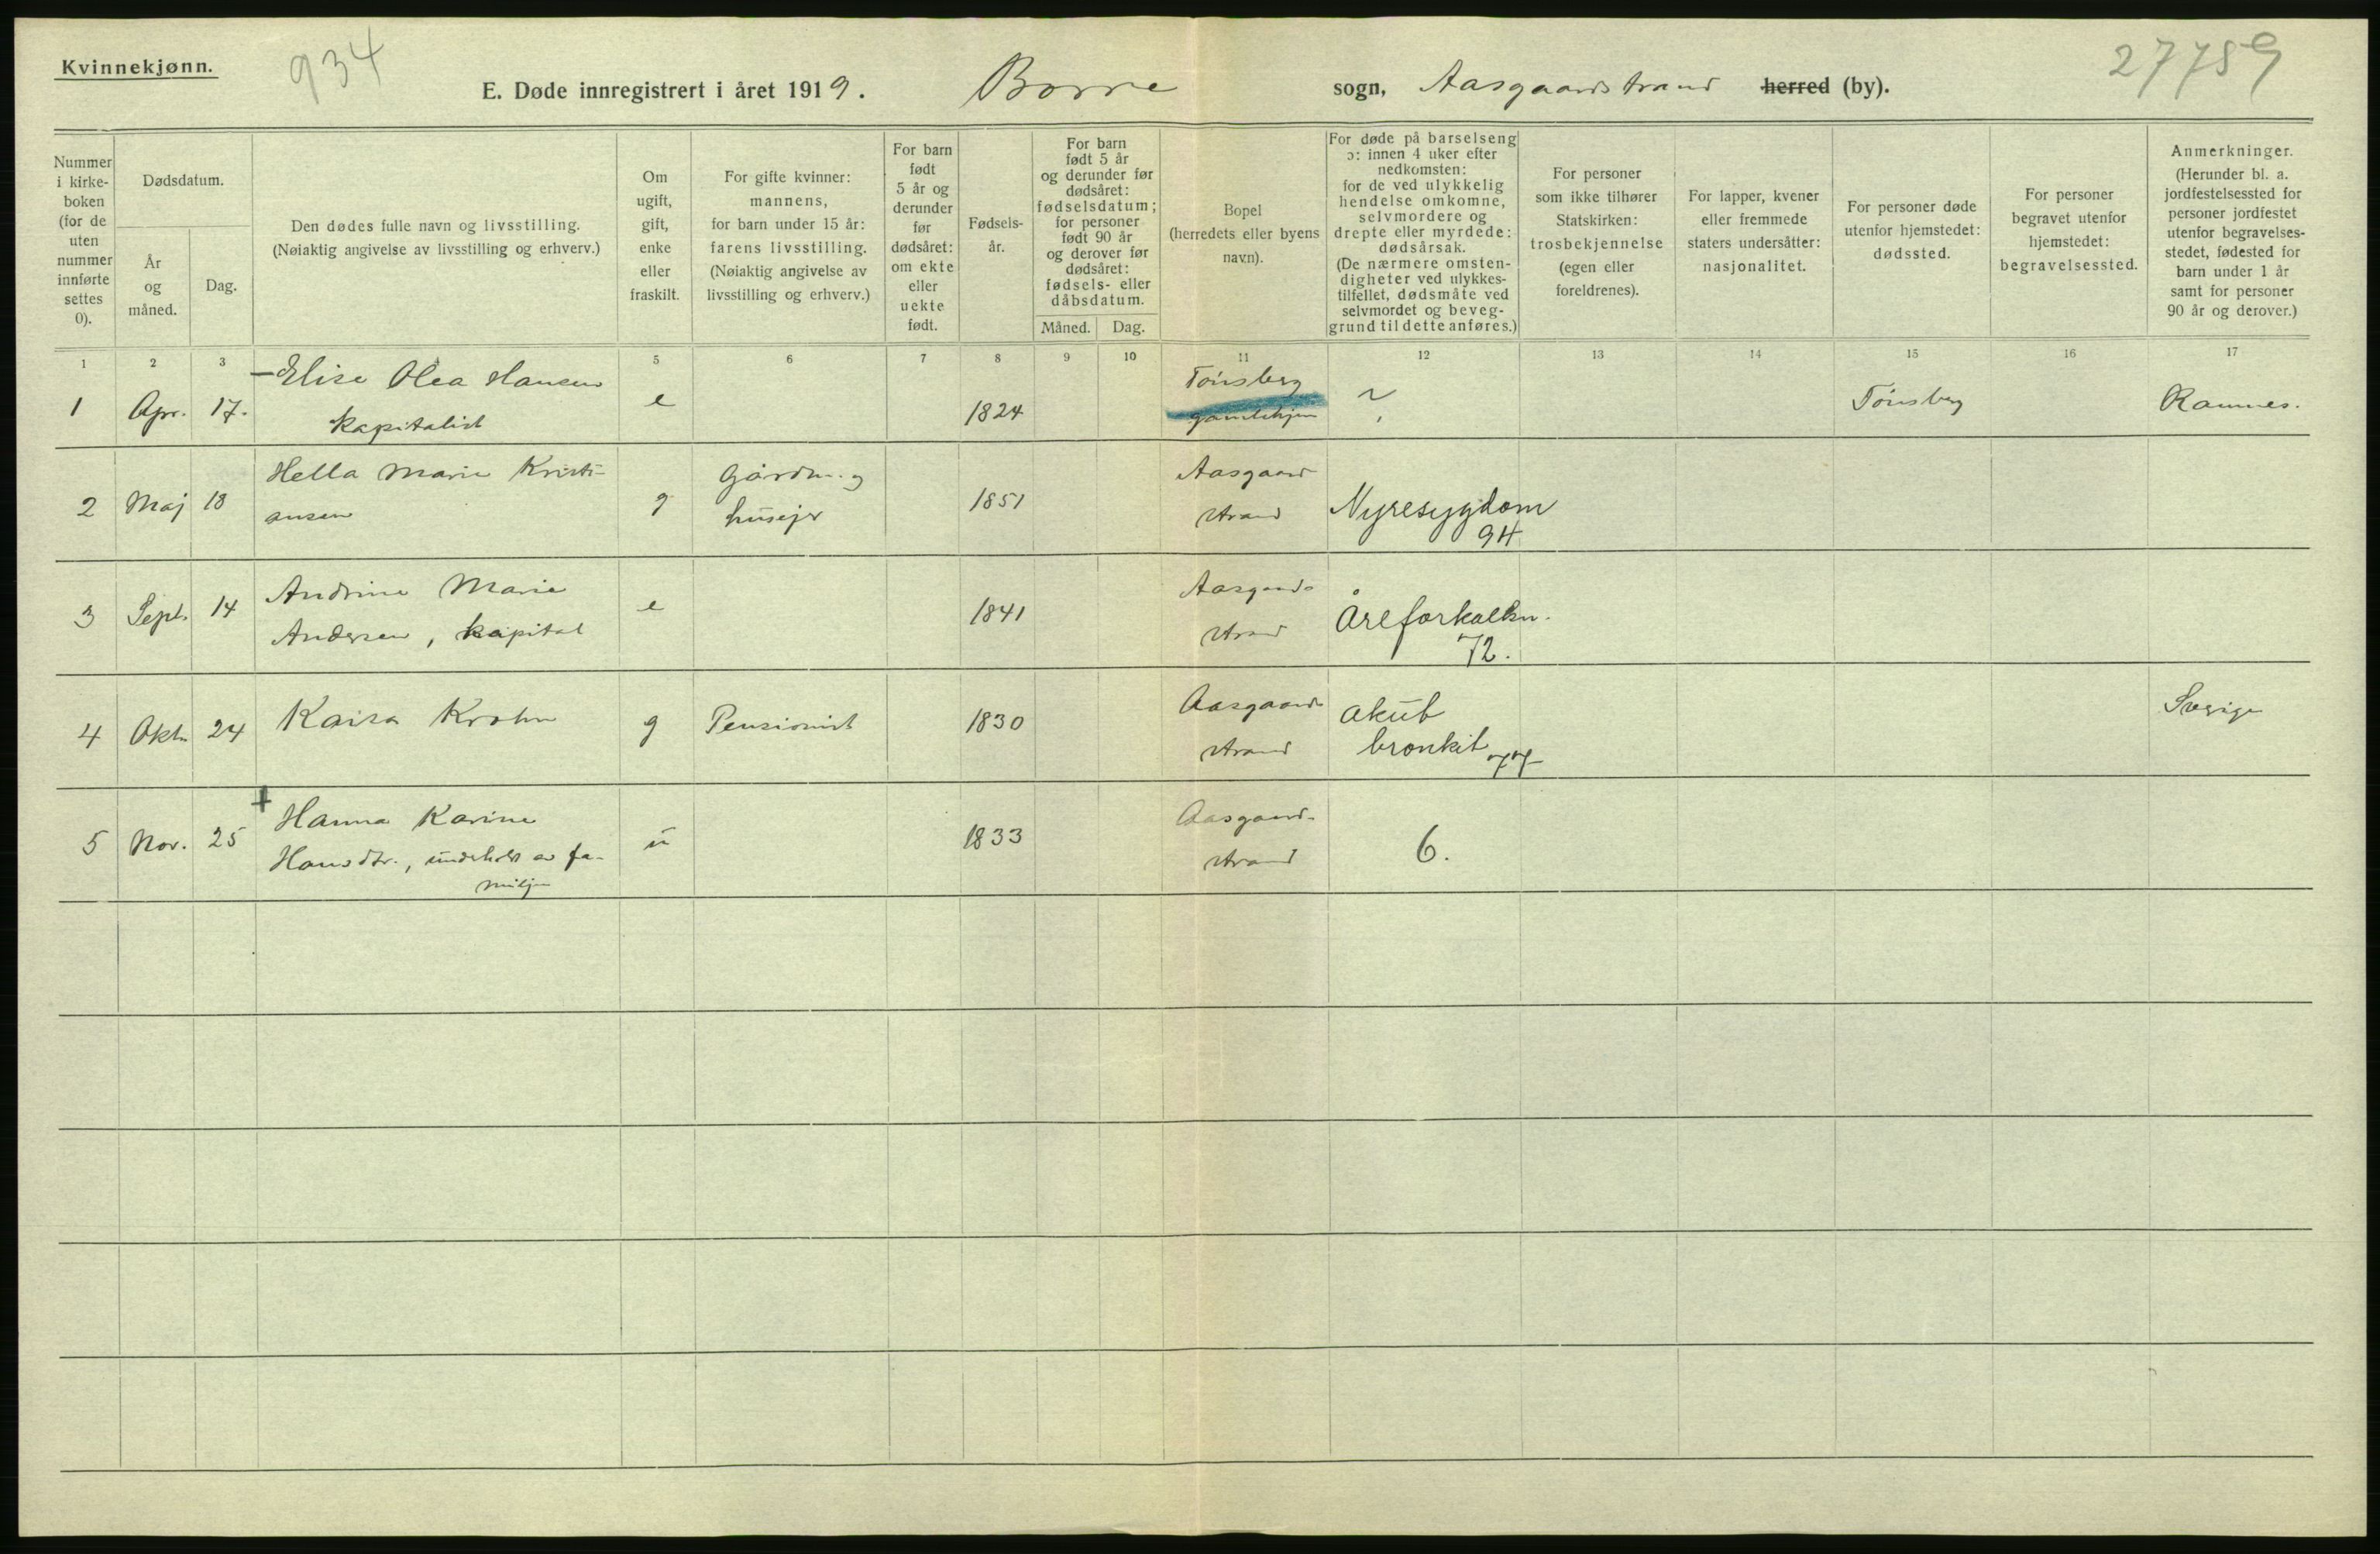 Kvinnekjønn.
934
E. Døde innregistrert i året 1919. Borre sogn, Aasgaardstrand herred (by).
27759
Nummer
i kirke-
boken
(for de
uten
nummer
innførte
settes
0).
Dødsdatum.
År
og
måned.
Dag.
Den dødes fulle navn og livsstilling.
(Nøiaktig angivelse av livsstilling og erhverv.)
Om
ugift,
gift,
enke
eller
fraskilt.
For gifte kvinner:
mannens,
for barn under 15 år:
farens livsstilling.
(Nøiaktig angivelse av
livsstilling og erhverv.)
For barn
født
5 år og
derunder
før
dødsåret:
om ekte
eller
uekte
født.
Fødsels-
år.
For barn
født 5 år
og derunder før
dødsåret:
fødselsdatum;
for personer
født 90 år
og derover før
dødsåret:
fødsels- eller
dåbsdatum.
Måned.
Dag.
Bopel
(herredets eller byens
navn).
For døde på barselseng
ɔ: innen 4 uker efter
nedkomsten:
for de ved ulykkelig
hendelse omkomne,
selvmordere og
drepte eller myrdede:
dødsårsak.
(De nærmere omsten-
digheter ved ulykkes-
tilfellet, dødsmåte ved
selvmordet og beveg-
grund til dette anføres.)
For personer
som ikke tilhører
Statskirken:
trosbekjennelse
(egen eller
foreldrenes).
For lapper, kvener
eller fremmede
staters undersåtter:
nasjonalitet.
For personer døde
utenfor hjemstedet:
dødssted.
For personer
begravet utenfor
hjemstedet:
begravelsessted.
Anmerkninger.
(Herunder bl. a.
jordfestelsessted for
personer jordfestet
utenfor begravelses-
stedet, fødested for
barn under 1 år
samt for personer
90 år og derover.)
1 2 3 5 6 7 8 9 10 11 12 13 14 15 16 17
1 Apr. 17.
Elise Olea Hansen
kapitalist
e
1824
Tönsberg
gamlehjem
?
Tönsberg
Ramnes.
2 Maj 18
Hella Marie Kristi-
ansen
g
Gårdm. og
husejer
1851
Aasgaard
strand
Nyresygdom
94
3 Sept. 14
Andrine Marie
Andersen, kapital
e
1841
Aasgaards
strand
Åreforkalkn.
72.
4 Okt. 24
Kaisa Krohn
g
Pensionist
1830
Aasgaard
strand
akut
bronkit
77
Sverige
5 Nov. 25
+ Hanna Karine
Hansdtr., underholdt av fa-
miljen
u
1833
Aasgaard-
strand
6.